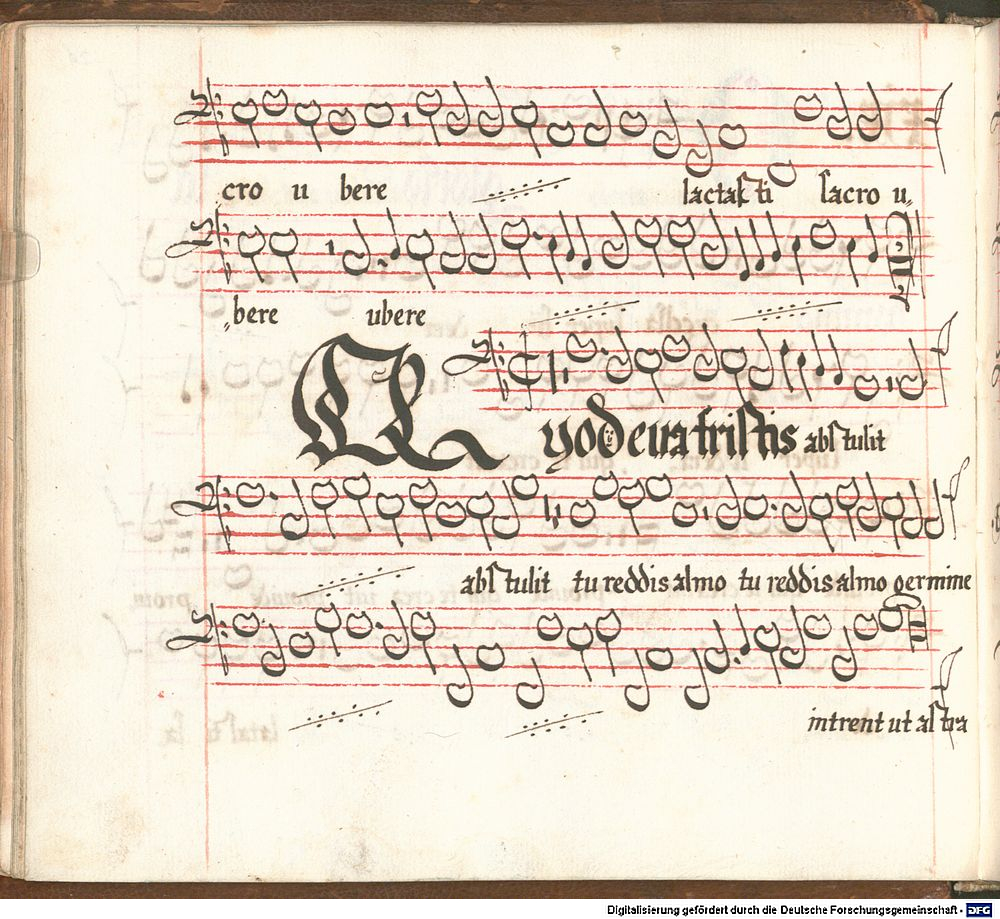 cro u bere lactasti sacro u„
„bere ubere
Quod eva tristis abstulit
abstulit tu reddis almo tu reddis almo germine
intrent ut astra
Digitalisierung gefördert durch die Deutsche Forschungsgemeinschaft - DFG